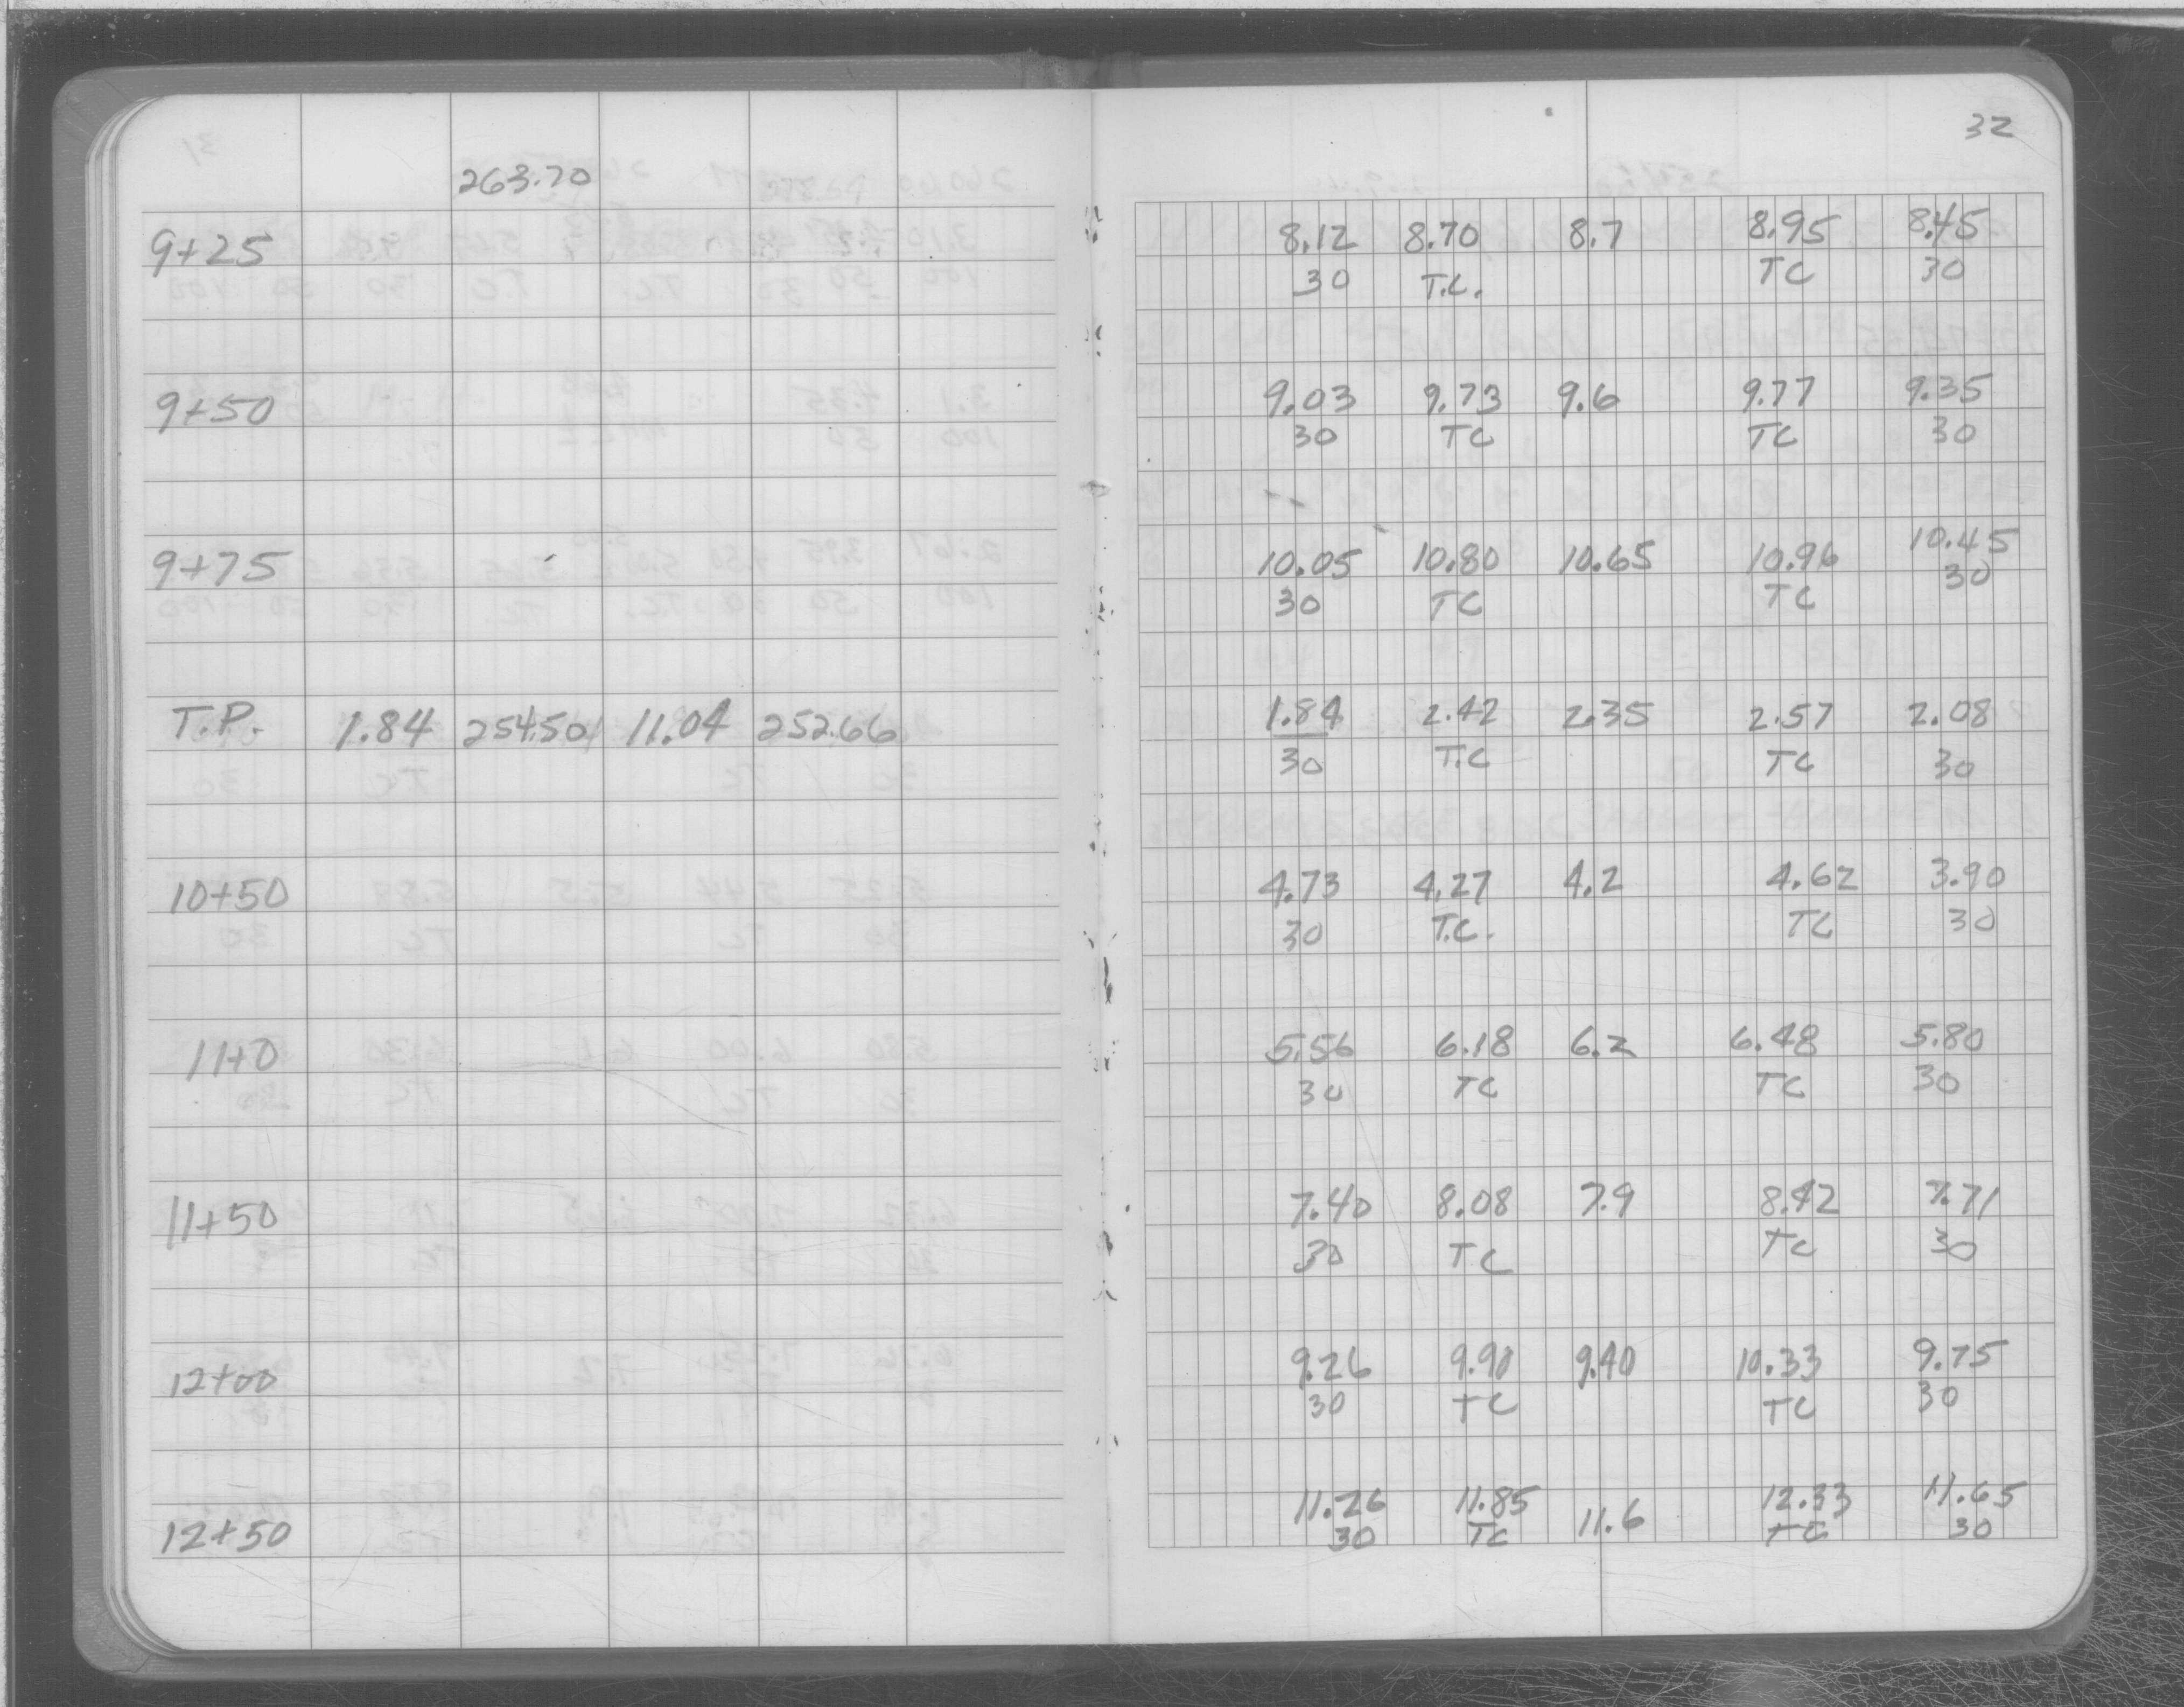 32
263.70
9+25 8.12 8.70 8.7 8.95 8.45
30 T.C. TC 30
9+50 9.03 9.73 9.6 9.77 9.35
30 TC TC 30
9+75 10.05 10.80 10.65 10.96 10.45
30 TC TC 30
T.P. 1.84 254.50 11.04 252.66 1.84 2.42 2.35 2.57 2.08
30 T.C TC 30
10+50 4.73 4.27 4.2 4.62 3.90
30 T.C. TC 30
11+0 5.56 6.18 6.2 6.48 5.80
30 TC TC 30
11+50 7.40 8.08 7.9 8.42 7.71
30 TC TC 30
12+00 9.26 9.90 9.40 10.33 9.75
30 TC TC 30
12+50 11.26 11.85 11.6 12.33 11.65
30 TC TC 30